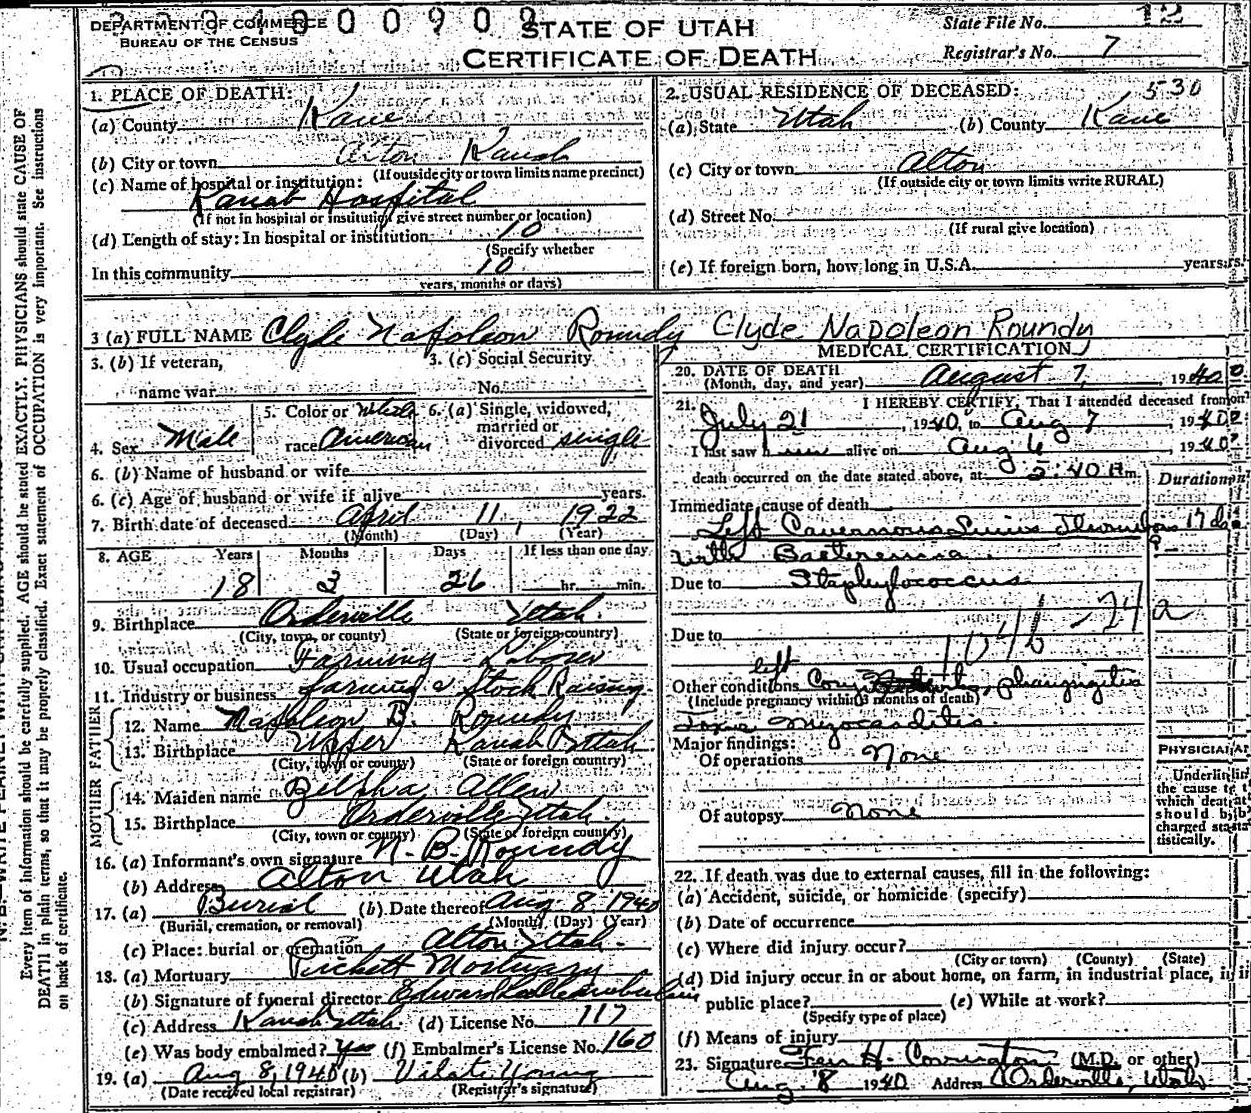 DEPARTMENT OF COMMERCE
BUREAU OF THE CENSUS
0 0 9 0 9
STATE OF UTAH
CERTIFICATE OF DEATH
State File No. 12
Registrar's No. 7
Every item of information should be carefully supplied. AGE should be stated EXACTLY. PHYSICIANS should state CAUSE OF
DEATH in plain terms, so that it may be properly classified. Exact statement of OCCUPATION is very important. See instructions
on back of certificate.
1. PLACE OF DEATH:
(a) County Kane
(b) City or town Kanab
(If outside city or town limits name precinct)
(c) Name of hospital or institution:
Kanab Hospital
(If not in hospital or institution give street number or location)
(d) Length of stay: In hospital or institution 10
(Specify whether
In this community 10
years, months or days)
2. USUAL RESIDENCE OF DECEASED: 530
(a) State Utah (b) County Kane
(c) City or town Alton
(If outside city or town limits write RURAL)
(d) Street No.
(If rural give location)
(e) If foreign born, how long in U.S.A. years.
3 (a) FULL NAME Clyde Napoleon Roundy Clyde Napoleon Roundy
3. (b) If veteran,
name war
3. (c) Social Security
No.
4. Sex Male
5. Color or White
race American
6. (a) Single, widowed,
married or
divorced single
6. (b) Name of husband or wife
6. (c) Age of husband or wife if alive years.
7. Birth date of deceased April 11, 1922
(Month) (Day) (Year)
8. AGE Years Months Days If less than one day
18 3 26 hr. min.
9. Birthplace Orderville Utah
(City, town, or county) (State or foreign country)
10. Usual occupation Farming Laborer
11. Industry or business farming & Stock Raising
FATHER
12. Name Napoleon B. Roundy
13. Birthplace Upper Kanab Utah
(City, town or county) (State or foreign country)
MOTHER
14. Maiden name Zilpha Allen
15. Birthplace Orderville Utah
(City, town or county) (State or foreign country)
16. (a) Informant's own signature N. B. Roundy
(b) Address Alton Utah
17. (a) Burial (b) Date thereof Aug 8, 1940
(Burial, cremation, or removal) (Month) (Day) (Year)
(c) Place: burial or cremation Alton Utah
18. (a) Mortuary Mortuary
(b) Signature of funeral director
(c) Address Kanab Utah (d) License No. 117
(e) Was body embalmed? Yes (f) Embalmer's License No. 160
19. (a) Aug 8, 1940 (b) Vilate Young
(Date received local registrar) (Registrar's signature)
MEDICAL CERTIFICATION
20. DATE OF DEATH
(Month, day, and year) August 7, 1940
21. I HEREBY CERTIFY, That I attended deceased from
July 21, 1940, to Aug 7, 1940
I last saw him alive on Aug 6 1940
death occurred on the date stated above, at 2:40 A m.
Duration
Immediate cause of death
Left Cavernous Sinus Thrombos 17 da
with Bacteremia
Due to Staphylococcus
Due to
104b - 24a
Other conditions left pharyngitis
(Include pregnancy within 3 months of death)
Toxic Myocarditis
Major findings:
Of operations None
Of autopsy None
PHYSICIAN
Underline
the cause to
which death
should be
charged sta-
tistically.
22. If death was due to external causes, fill in the following:
(a) Accident, suicide, or homicide (specify)
(b) Date of occurrence
(c) Where did injury occur?
(City or town) (County) (State)
(d) Did injury occur in or about home, on farm, in industrial place, in
public place? (e) While at work?
(Specify type of place)
(f) Means of injury
23. Signature H. Covington (M.D. or other)
Aug 8 1940 Address Orderville, Utah